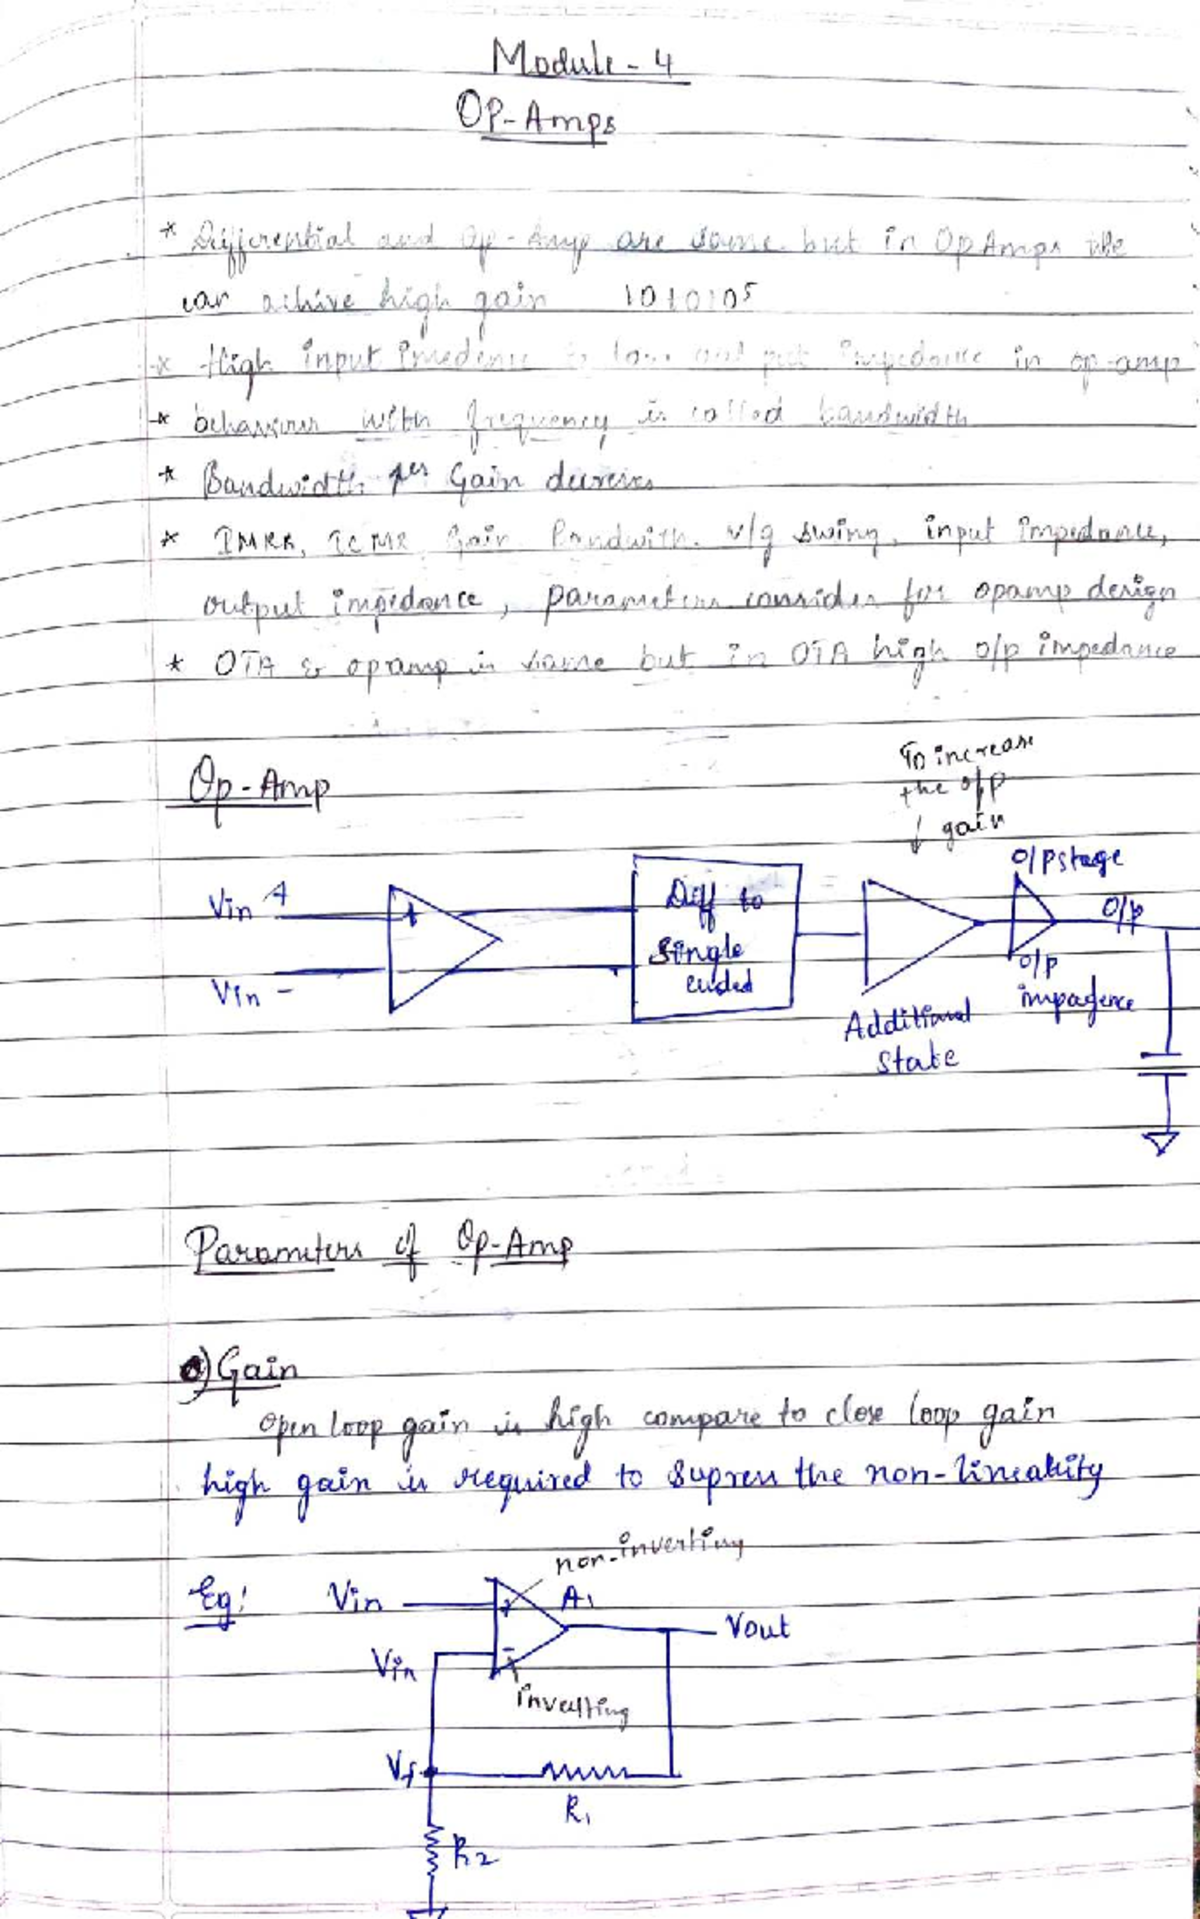 Module - 4
OP-Amps
* Differential and Op-Amp are same but in OpAmps we
can achive high gain 10 to 10^5
* High input impedence & low out put impedance in op-amp
* behaviour with frequency is called bandwidth
* Bandwidth ↑es Gain decreses
* IMRR, ICMR Gain Bandwith. v/g swing, input impedance,
output impedance, parameters consider for opamp design
* OTA & opamp is same but in OTA high o/p impedance
Op-Amp
To increase
the o/p
↓ gain
o/p stage
Vin +
+
Diff to
o/p
Single
Vin -
ended
o/p
impadence
Additional
State
Parameters of Op-Amp
a) Gain
open loop gain is high compare to close loop gain
high gain is required to supress the non-linearity
non-inverting
Eg:
Vin
+
A1
Vout
Vin
-
inverting
Vf
R1
R2